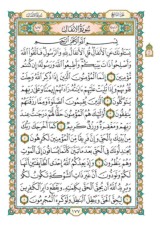 سُورَةُ الأَنفَال
بِسْمِ اللَّهِ الرَّحْمَٰنِ الرَّحِيمِ
يَسْـَٔلُونَكَ عَنِ ٱلْأَنفَالِ قُلِ ٱلْأَنفَالُ لِلَّهِ وَٱلرَّسُولِ فَٱتَّقُوا۟ ٱللَّهَ
وَأَصْلِحُوا۟ ذَاتَ بَيْنِكُمْ وَأَطِيعُوا۟ ٱللَّهَ وَرَسُولَهُۥٓ إِن كُنتُم
مُّؤْمِنِينَ ١ إِنَّمَا ٱلْمُؤْمِنُونَ ٱلَّذِينَ إِذَا ذُكِرَ ٱللَّهُ وَجِلَتْ قُلُوبُهُمْ
وَإِذَا تُلِيَتْ عَلَيْهِمْ ءَايَٰتُهُۥ زَادَتْهُمْ إِيمَٰنًا وَعَلَىٰ رَبِّهِمْ
يَتَوَكَّلُونَ ٢ ٱلَّذِينَ يُقِيمُونَ ٱلصَّلَوٰةَ وَمِمَّا رَزَقْنَٰهُمْ
يُنفِقُونَ ٣ أُو۟لَٰٓئِكَ هُمُ ٱلْمُؤْمِنُونَ حَقًّا لَّهُمْ دَرَجَٰتٌ عِندَ
رَبِّهِمْ وَمَغْفِرَةٌ وَرِزْقٌ كَرِيمٌ ٤ كَمَآ أَخْرَجَكَ رَبُّكَ
مِنۢ بَيْتِكَ بِٱلْحَقِّ وَإِنَّ فَرِيقًا مِّنَ ٱلْمُؤْمِنِينَ لَكَٰرِهُونَ ٥
يُجَٰدِلُونَكَ فِى ٱلْحَقِّ بَعْدَمَا تَبَيَّنَ كَأَنَّمَا يُسَاقُونَ إِلَى ٱلْمَوْتِ
وَهُمْ يَنظُرُونَ ٦ وَإِذْ يَعِدُكُمُ ٱللَّهُ إِحْدَى ٱلطَّآئِفَتَيْنِ أَنَّهَا
لَكُمْ وَتَوَدُّونَ أَنَّ غَيْرَ ذَاتِ ٱلشَّوْكَةِ تَكُونُ لَكُمْ وَيُرِيدُ
ٱللَّهُ أَن يُحِقَّ ٱلْحَقَّ بِكَلِمَٰتِهِۦ وَيَقْطَعَ دَابِرَ ٱلْكَٰفِرِينَ ٧
لِيُحِقَّ ٱلْحَقَّ وَيُبْطِلَ ٱلْبَٰطِلَ وَلَوْ كَرِهَ ٱلْمُجْرِمُونَ ٨
١٧٧